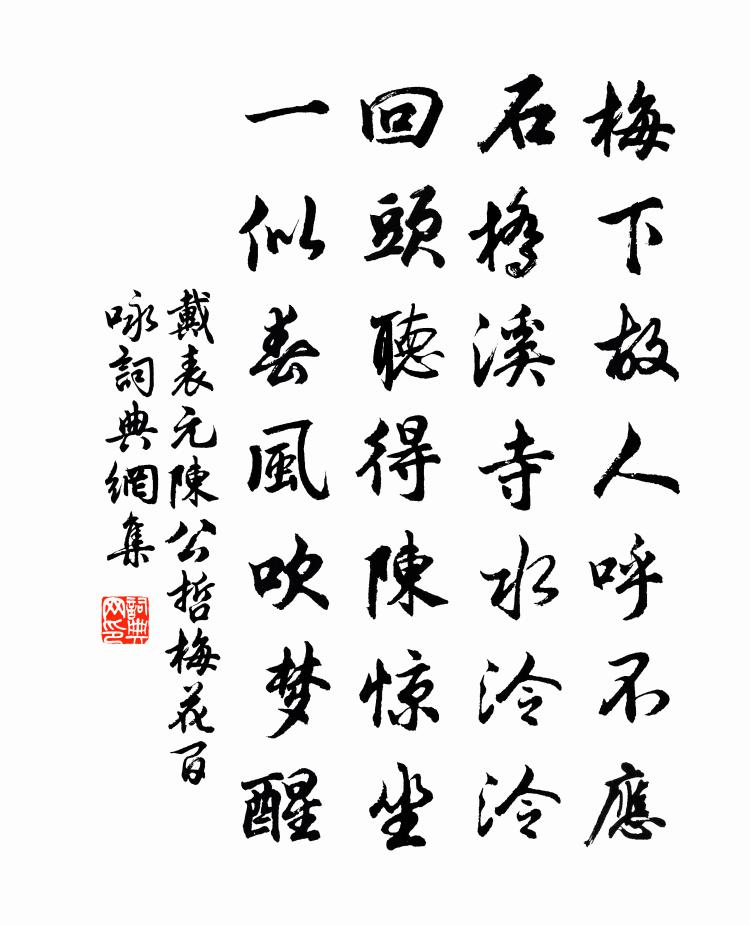 梅下故人呼不應
石橋溪寺水泠泠
回頭聽得陳惊坐
一似春風吹梦醒
戴表元陳公哲梅花百
咏詞典網集
詞典
网印